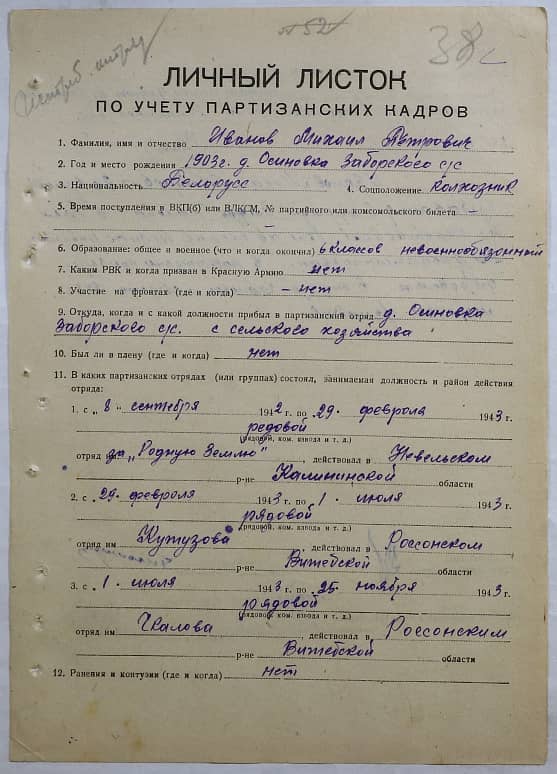 № 52
38
Истреб. отряд
ЛИЧНЫЙ ЛИСТОК
ПО УЧЕТУ ПАРТИЗАНСКИХ КАДРОВ
1. Фамилия, имя и отчество Иванов Михаил Петрович
2. Год и место рождения 1903г. д. Осиновка Заборского с/с
3. Национальность Белорусс 4. Соцположение колхозник
5. Время поступления в ВКП(б) или ВЛКСМ, № партийного или комсомольского билета –
–
6. Образование: общее и военное (что и когда окончил) 6 классов невоеннообязанный
7. Каким РВК и когда призван в Красную Армию нет
8. Участие на фронтах (где и когда) – нет
9. Откуда, когда и с какой должности прибыл в партизанский отряд д. Осиновка
Заборского с/с. с сельского хозяйства
10. Был ли в плену (где и когда) нет
11. В каких партизанских отрядах (или группах) состоял, занимаемая должность и район действия
отряда:
1. с „ 8 " сентября 1942 г. по 29. феврола 1943 г.
редовой
(рядовой, ком. взвода и т. д.)
отряд за „Родную Землю" , действовал в Невельском
р-не Калининской области
2. с „ 29. февраля 1943 г. по 1. июля 1943 г.
рядовой
(рядовой, ком. взвода и т. д.)
отряд им Кутузова действовал в Россонском
р-не Витебской области
3. с „ 1. июля 1943 г. по 25. ноября 1943 г.
рядовой
(рядовой, ком. взвода и т. д.)
отряд им Чкалова , действовал в Россонским
р-не Витебской области
12. Ранения и контузии (где и когда) нет